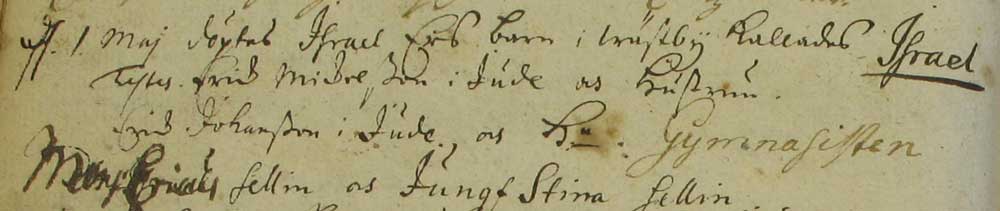 d. 1 Maj döptes Israel Ers barn i trästby Kallades Israel
Testes. Erich Michelsson i Jude os Hustrun.
Erich Johansson i Jude, os Hn. Gymnasisten
Mons Ericus Sellin os Jungf Stina Sellin.